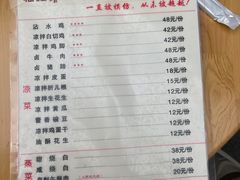 一直被模仿,从未被超越!
凉菜
沾水鸡 48元/份
凉拌白切鸡 48元/份
凉拌鸡脚 48元/份
卤牛肉 48元/份
卤猪蹄 48元/份
凉拌皮蛋 18元/份
凉拌折耳根 12元/份
凉拌花生 12元/份
凉拌黄瓜 12元/份
凉拌鸡蛋干 15元/份
油酥花生 12元/份
蒸菜
甜烧白 38元/份
咸烧白 38元/份
20元/份